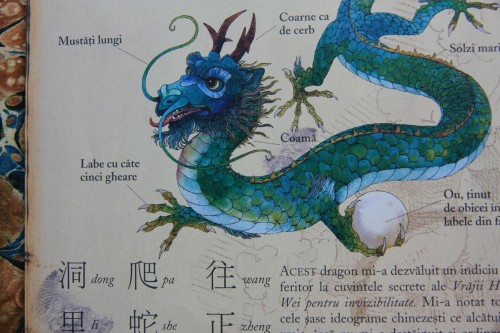 Coarne ca
de cerb
Mustăți lungi
Solzi mari
Coamă
Labe cu câte
cinci gheare
Ou, ținut
de obicei în
labele din
洞 dong 爬 pa 往 wang
里 li 蛇 she 正 zheng
ACEST dragon mi-a dezvăluit un indiciu
feritor la cuvintele secrete ale Vrăjii H
Wei pentru invizibilitate. Mi-a notat
cele șase ideograme chinezești ce alcătu